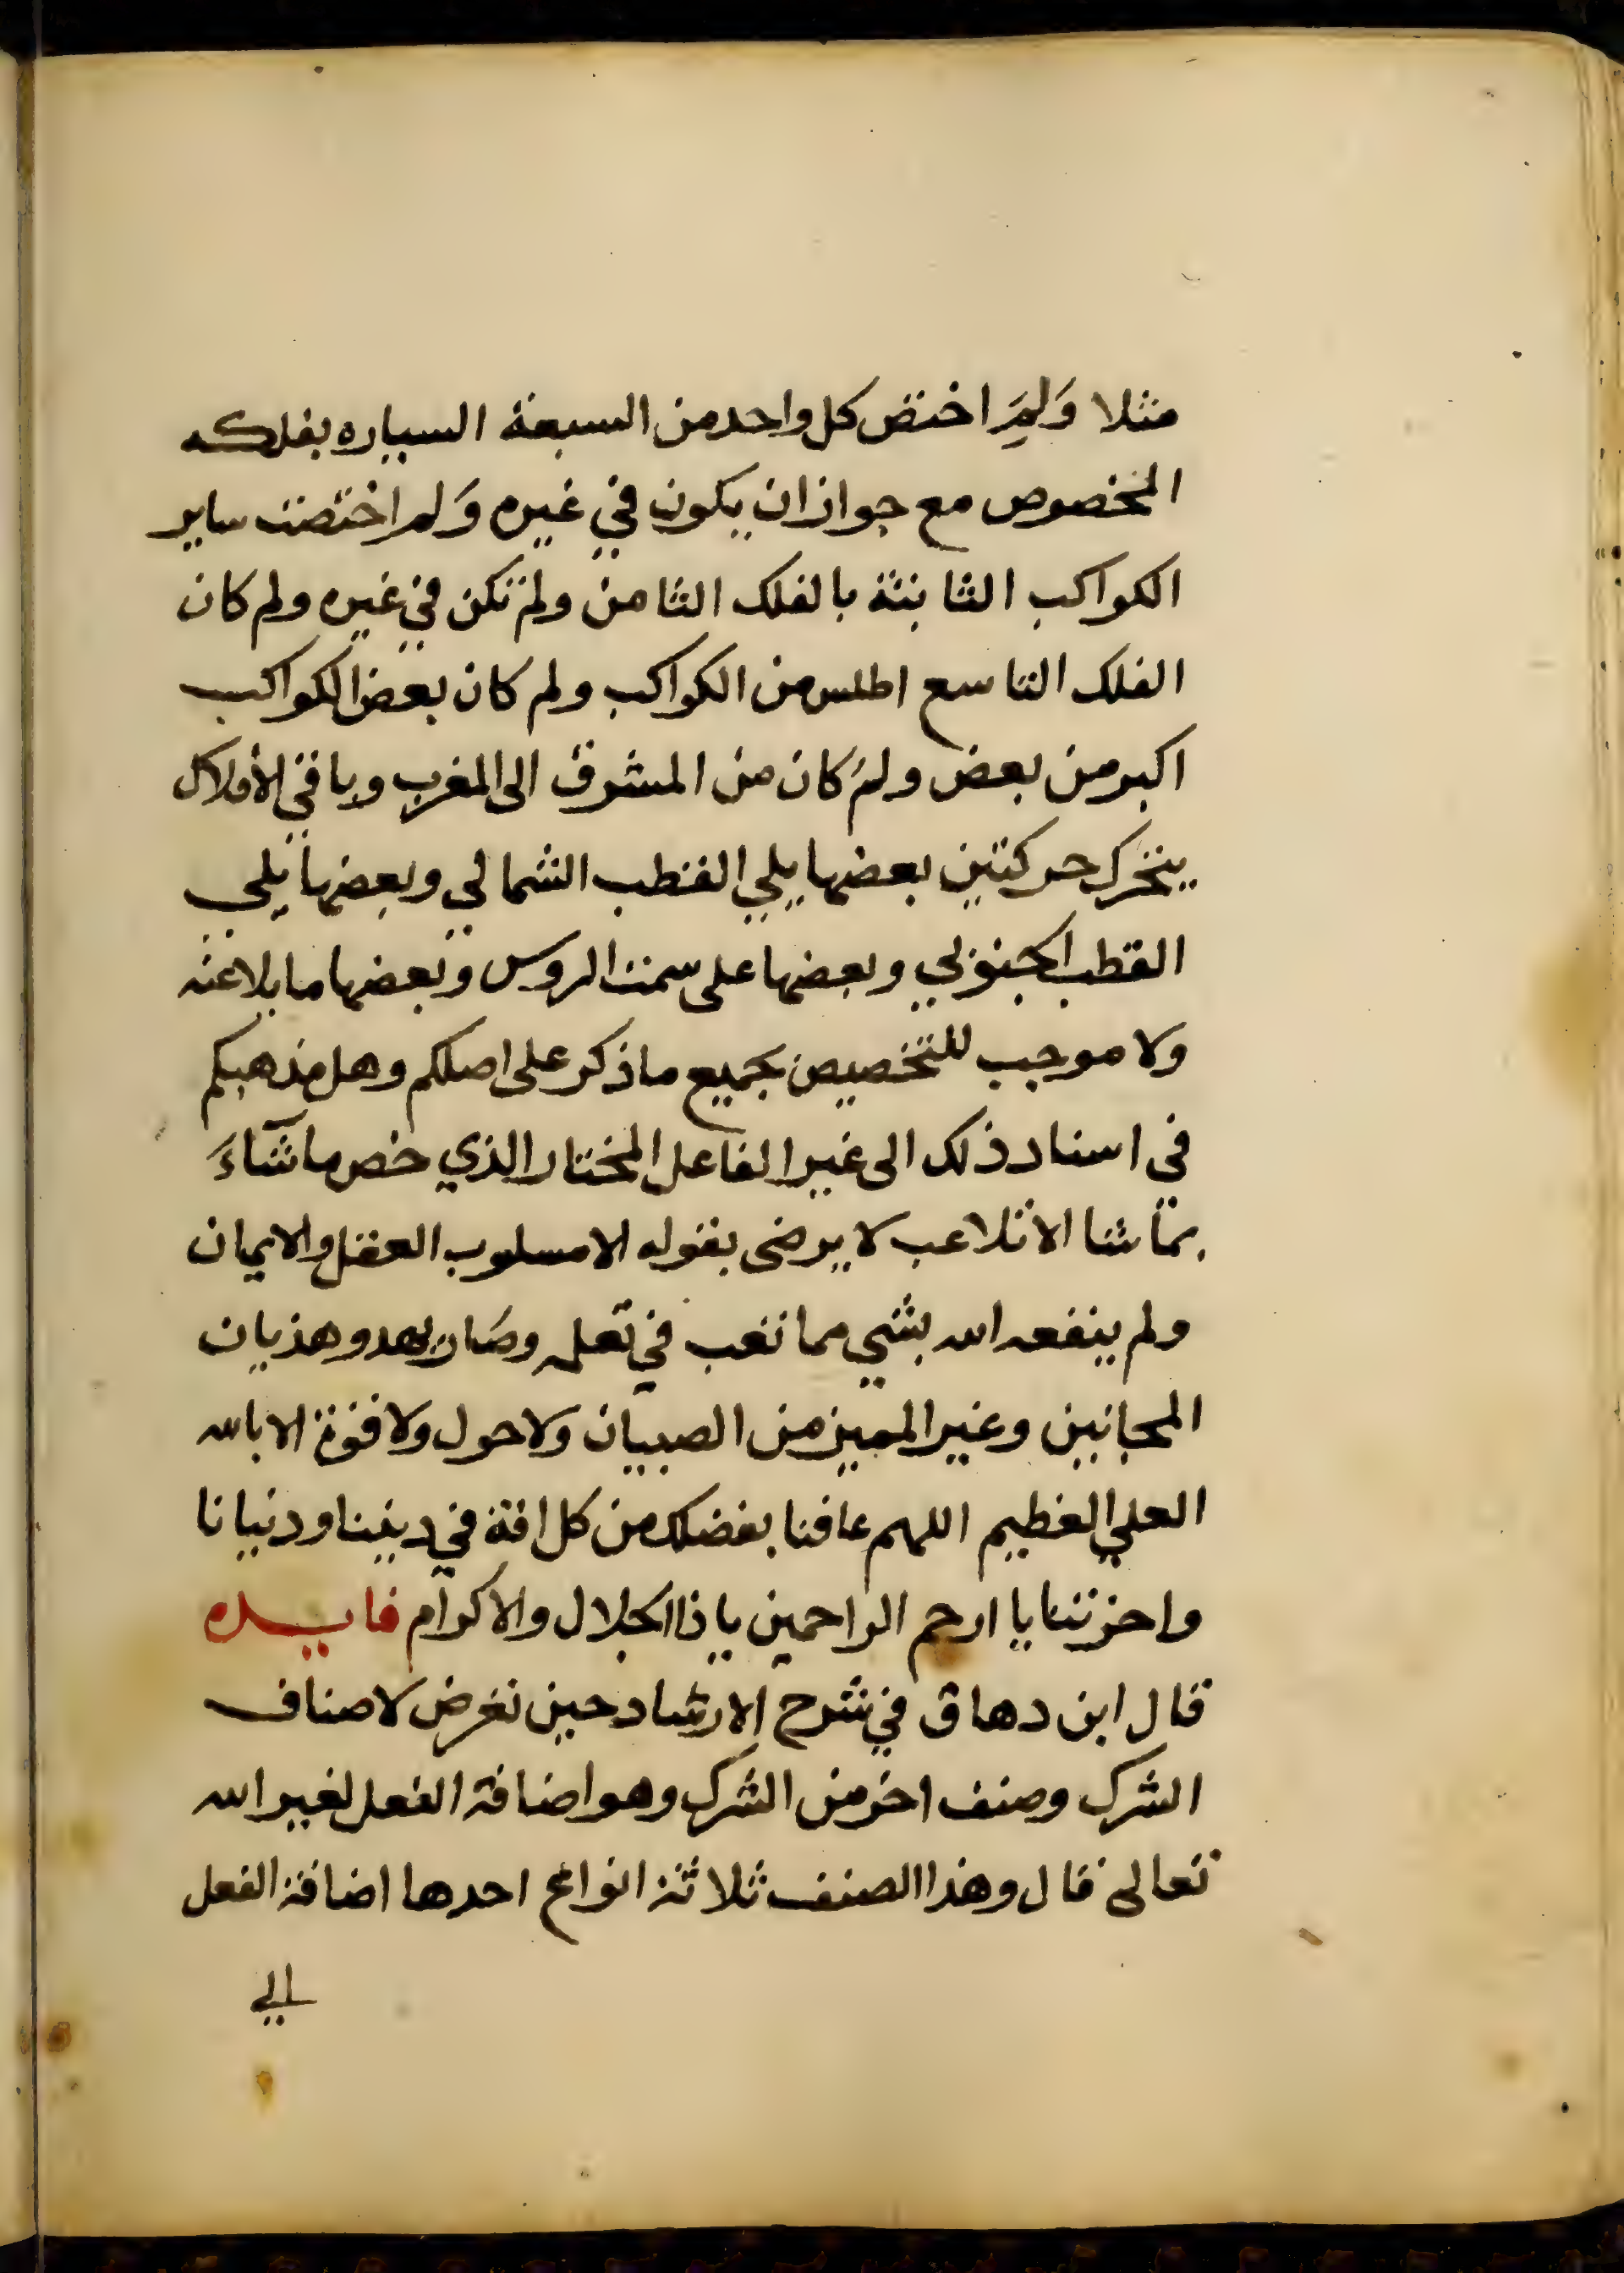 مثلا وَلِمَ اختص كل واحد من السبعة السياره بفلكه
المخصوص مع جواز ان يكون في غيره وَلم اختصت ساير
الكواكب الثابتة بالفلك الثامن ولم تكن في غيره ولم كان
الفلك التاسع اطلس من الكواكب ولم كان بعض الكواكب
اكبر من بعض ولم كان من المشرق الى المغرب وباقي الأفلاك
يتحرك حركتين بعضها يلي القطب الشمالي وبعضها يلي
القطب الجنوبي وبعضها على سمت الروس وبعضها مايلا عنه
ولا موجب للتخصيص بجميع ما ذكر على اصلكم وهل مذهبكم
في اسناد ذلك الى غير الفاعل المختار الذي خص ما شاءَ
بما شا الا تلاعب لا يرضى بقوله الا مسلوب العقل والايمان
ولم ينفعه الله بشي مما تعب في تعلمه وصَار يهدو هذيان
المجانين وغير المميز من الصبيان ولا حول ولا قوة الا بالله
العلي العظيم اللهم عافنا بفضلك من كل افة في ديننا ودنيانا
واخرتنا يا ارحم الراحمين ياذا الجلال والاكرام فايـــده
قال ابن دهاق في شرح الارشاد حين تعرض لاصناف
الشرك وصنف اخر من الشرك وهو اضافة الفعل لغير الله
تعالى قال وهذا الصنف ثلاثة انواع احدها اضافة الفعل
الي